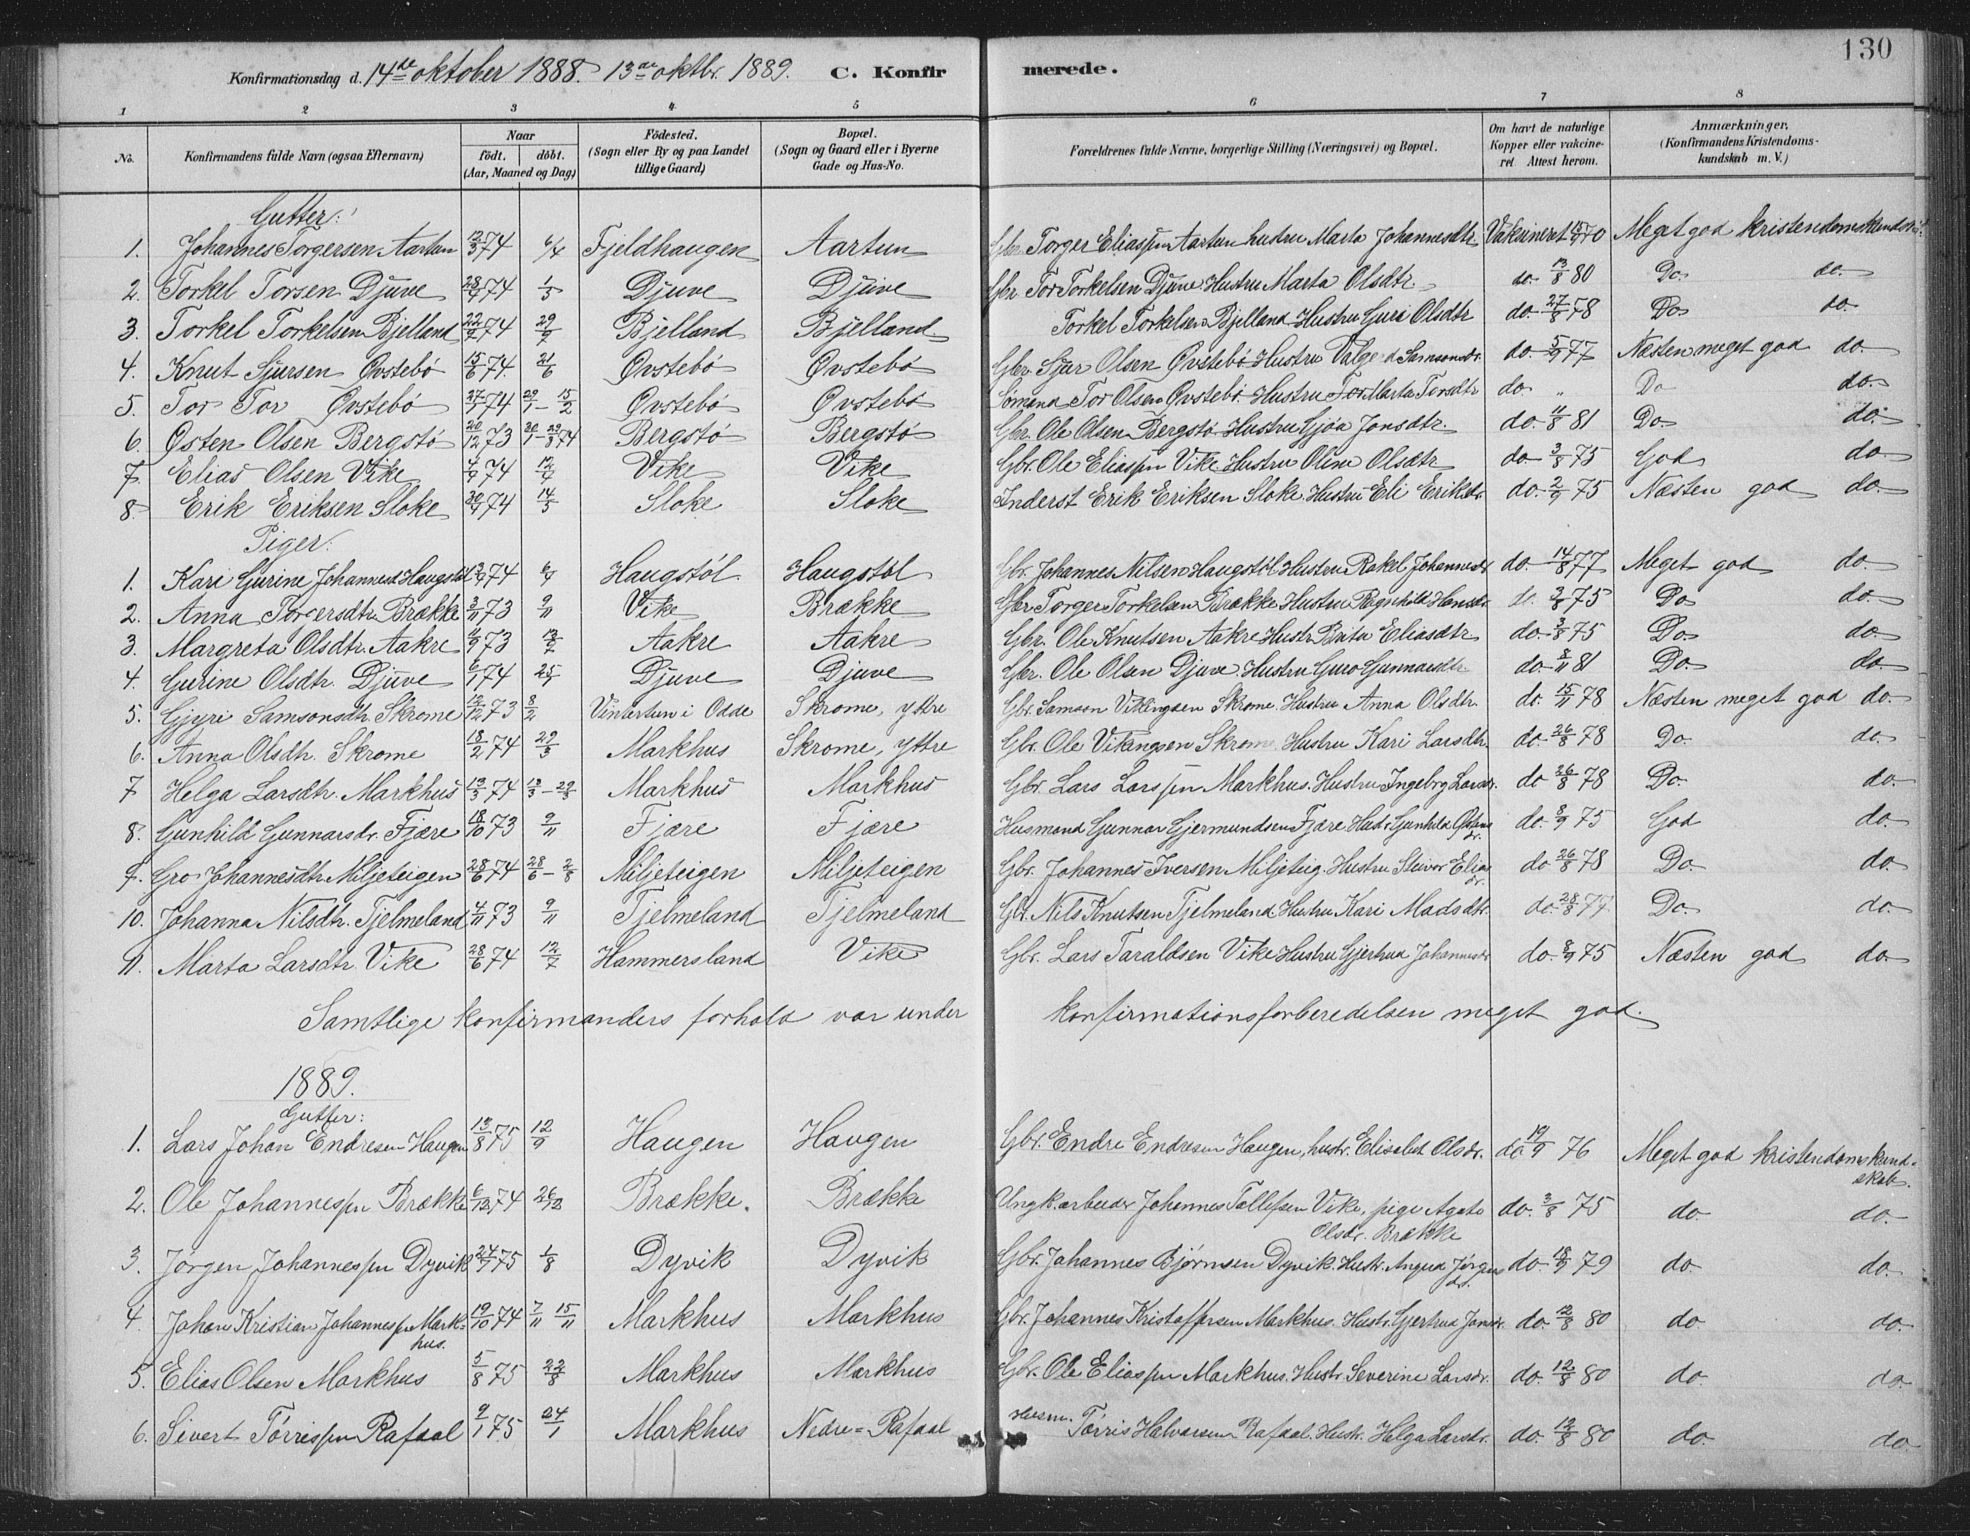 130
Konfirmationsdag d. 14de oktober 1888. 13de oktbr. 1889. C. Konfir merede.
1 2 3 4 5 6 7 8
No. Konfirmandens fulde Navn (ogsaa Efternavn) Naar født. døbt. (Aar, Maaned og Dag) Födested. (Sogn eller By og paa Landet tillige Gaard) Bopæl. (Sogn og Gaard eller i Byerne Gade og Hus-No. Forældrenes fulde Navne, borgerlige Stilling (Næringsvei) og Bopæl. Om havt de naturlige Kopper eller vakcineret Attest herom. Anmærkninger, (Konfirmandens Kristendomskundskab m. V.)
Gutter:
1. Johannes Torgersen Aartun 12/3 74 6/4 Fjeldhaugen Aartun Gbr. Torger Eliassen Aartun hustru Marta Johannesdtr Vakcineret Meget god kristendomskundskab
2. Torkel Torsen Djuve 74 1/5 Djuve Djuve Gbr Tor Torkelsen Djuve Hustru Marta Olsdtr do. 13/8 80 Do do.
3. Torkel Torkelsen Bjelland 74 Bjelland Bjelland Torkel Torkelsen Bjelland Hustru Guri Olsdtr do. 27/8 78 Do do.
4. Knut Sjursen Øvstebø 15/6 74 21/6 Øvstebø Øvstebø Gbr. Sjur Olsen Øvstebø Hustru Samsonsdr. do. 5/9 77 Næsten meget god do.
5. Tor Tor Øvstebø 27/1 74 29/1 - 15/2 Øvstebø Øvstebø Sømand Tor Olsen Øvstebø Hustru Marta Torsdtr do " Do do.
6. Østen Olsen Bergstø 20/12 73 Bergstø Bergstø Gbr. Ole Olsen Bergstø Hustru Gjøa Jonsdtr. do. 11/8 81 Do do.
7. Elias Olsen Vike 74 Vike Vike Gbr. Ole Eliassen Vike Hustru Oline Olsdtr do 3/8 75 God do
8. Erik Eriksen Sloke 74 14/5 Sloke Sloke Inderst Erik Eriksen Sloke. Hustru Eli Eriksdr. do. 2/9 75 Næsten god do.
Piger:
1. Kari Gurine Johannesd Haugstøl 74 Haugstøl Haugstøl Gbr. Johannes Nilsen Haugstøl Hustru Rakel Johannesdr do. 14/8 77 Meget god do.
2. Anna Torgersdtr Brække 3/11 73 9/11 Vike Brække Gbr Torger Torkelsen Brække Hustru Ragnhild Hansdr. do. 2/8 75 Do do.
3. Margreta Olsdtr. Aakre 73 Aakre Aakre Gbr. Ole Knutsen Aakre Hustr. Brita Eliasdtr do. 3/8 75 Do do
4. Gurine Olsdtr. Djuve 6/1 74 25/1 Djuve Djuve Gbr. Ole Olsen Djuve Hustru Guro Gunnarsdtr do. 8/11 81 Do do.
5. Gjyri Samsonsdtr. Skrome 12/12 73 8/2 Vintertun i Odde Skrome, Ytre Gbr. Samson Vikingsen Skrome. Hustru Anna Olsdtr. do. 15/11 78 Næsten meget god do.
6. Anna Olsdtr. Skrome 18/2 74 29/3 Markhus Skrome, Ytre Gbr. Ole Vikingsen Skrome. Hustru Kari Larsdtr. do. 26/8 78 Do. do.
7 Helga Larsdtr. Markhus 13/3 74 13/3 - 29/3 Markhus Markhus Gbr. Lars Larssen Markhus. Hustru Ingeborg Larsdr. do 26/8 78 Do. do.
8. Gunhild Gunnarsdr. Fjære 18/10 73 9/11 Fjære Fjære Husmand Gunnar Gjermundsen Fjære Hustr. Gunhild Østensdr. do. 8/9 75 God do.
9. Gro Johannesdtr Miljeteigen 28/6 74 28/6 - 2/8 Miljeteigen Miljeteigen Gbr. Johannes Iversen Miljeteig. Hustru Steivor Eliasdr. do 26/8 78 Do. do
10. Johanna Nilsdtr. Tjelmeland 4/11 73 9/11 Tjelmeland Tjelmeland Gbr. Nils Knutsen Tjelmeland Hustru Kari Madsdtr. do. 28/8 77 Do. do.
11. Marta Larsdtr. Vike 28/6 74 12/7 Hammersland Vike Gbr. Lars Taraldsen Vike Hustru Gjertrud Johannesdr do. 8/9 75 Næsten god do.
Samtlige konfirmanders forhold var under konfirmationsforberedelsen meget god.
1889.
Gutter:
1. Lars Johan Endresen Haugen 13/8 75 12/9 Haugen Haugen Gbr. Endre Endresen Haugen, hustr. Elisabet Olsdr. do 19/9 76 Meget god kristendomskundskab.
2. Ole Johannessen Brække 6/12 74 26/12 Brække. Brække Ungk. arbeider Johannes Tollefsen Vike, pige Agate Olsdr. Brække do. 3/8 75 do. do.
3. Jørgen Johannessen Dyvik 24/7 75 1/8 Dyvik Dyvik Gbr. Johannes Bjørnsen Dyvik. Hustr. Jørgensdr. do. 18/9 79 do. do.
4 Johan Kristian Johannessen Markhus. 19/10 74 7/11 15/11 Markhus Markhus Gbr. Johannes Kristoffersen Markhus. Hustr. Gjertrud Jonsdr. do. 12/8 80 do do.
5. Elias Olsen Markhus 5/8 75 22/8 Markhus Markhus Gbr. Ole Eliassen Markhus. Hustr. Severine Larsdr. do. 12/8 80 do. do.
6. Sivert Tørrissen Rafaal 9/1 75 24/1 Markhus Nedre=Rafaal Husm. Tørris Halvorsen Rafaal. Hustr. Helga Larsdr. do. 12/8 80 do. do.